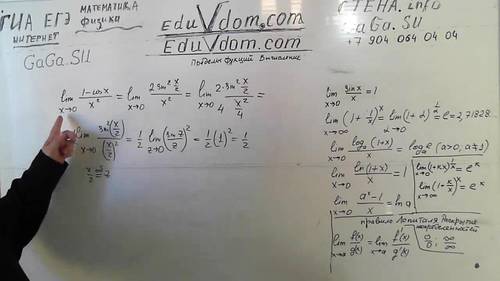 ГИА ЕГЭ МАТЕМАТИКА физика
ИНТЕРНЕТ
GaGa.SU
EduVdom.com
EduVdom.com
Пределы функций Вычисление
СТЕНА.info
GaGa.SU
+7 904 064 04 04
lim x→0 (1-cosx)/x² = lim x→0 (2sin² x/2)/x² = lim x→0 (2·sin² x/2)/(4 x²/4) =
lim x→0 sin²(x/2)/(x/2)² = 1/2 lim z→0 (sin z/z)² = 1/2 (1)² = 1/2
x/2 = z
lim x→0 sinx/x = 1
lim x→∞ (1+1/x)^x = lim α→0 (1+α)^(1/α) = e = 2,71828
lim x→0 logₐ(1+x)/x = logₐe (a>0, a≠1)
lim x→0 ln(1+x)/x = 1
lim x→0 (aˣ-1)/x = ln a
lim x→0 (1+kx)^(1/x) = eᵏ
lim x→∞ (1+k/x)^x = eᵏ
правило Лопиталя Раскрытие неопределенностей
lim x→a f(x)/g(x) = lim x→a f'(x)/g'(x) 0/0; ∞/∞